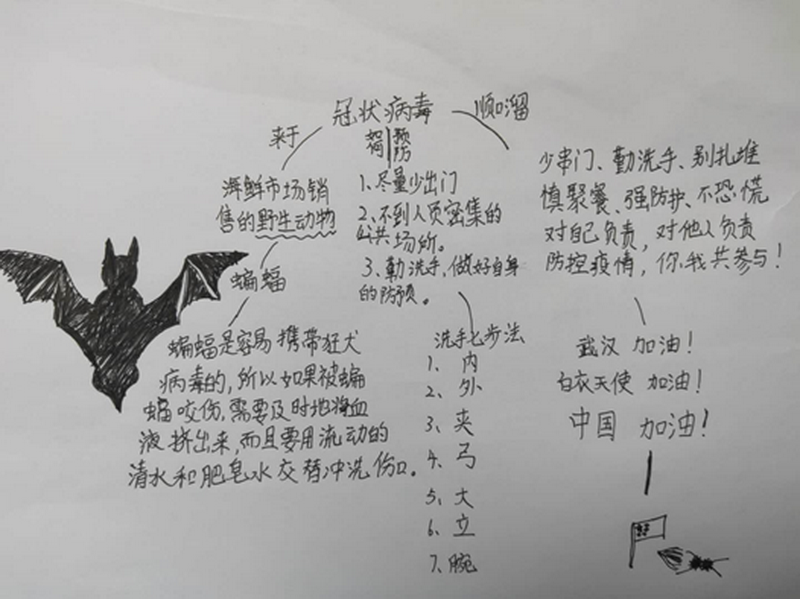 冠状病毒
来于
海鲜市场销
售的野生动物
蝙蝠
蝙蝠是容易携带狂犬
病毒的,所以如果被蝙
蝠咬伤,需要及时地将血
液挤出来,而且要用流动的
清水和肥皂水交替冲洗伤口。
如何
预防
1、尽量少出门
2、不到人员密集的
公共场所。
3、勤洗手,做好自身
的防预。
洗手七步法
1、内
2、外
3、夹
4、弓
5、大
6、立
7、腕
顺口溜
少串门、勤洗手、别扎堆
慎聚餐、强防护、不恐慌
对自己负责,对他人负责
防控疫情,你我共参与!
武汉 加油!
白衣天使 加油!
中国 加油!